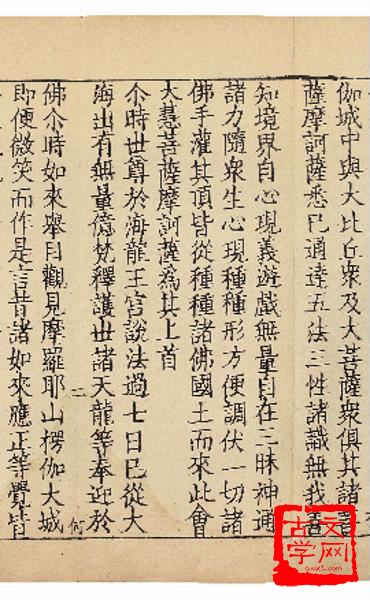 伽城中與大比丘衆及大菩薩衆俱其諸菩
薩摩訶薩悉已通達五法三性諸識無我善
知境界自心現義遊戲無量自在三昧神通
諸力隨衆生心現種種形方便調伏一切諸
佛手灌其頂皆從種種諸佛國土而來此會
大慧菩薩摩訶薩爲其上首
尒時世尊於海龍王宮說法過七日已從大
海出有無量億梵釋護世諸天龍等奉迎於
二 何
佛尒時如來舉目觀見摩羅耶山楞伽大城
即便微笑而作是言昔諸如來應正等覺皆
古文学网
gwx5.com